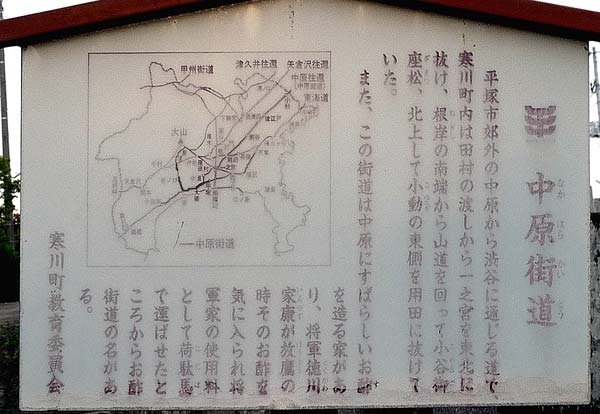 中原街道
なか はら かい どう
平塚市郊外の中原から渋谷に通じる道で、
寒川町内は田村の渡しから一之宮を東北に
抜け、根岸の南端から山道を回って小谷御
座松、北上して小動の東側を用田に抜けて
いた。
また、この街道は中原にすばらしいお酢
を造る家があ
り、将軍徳川
家康が放鷹の
時そのお酢を
気に入られ将
軍家の使用料
として荷駄馬
で運ばせたと
ころからお酢
街道の名があ
る。
寒川町教育委員会
甲州街道
津久井往還
矢倉沢往還
中原往還
(中原街道)
東海道
大山
中原街道